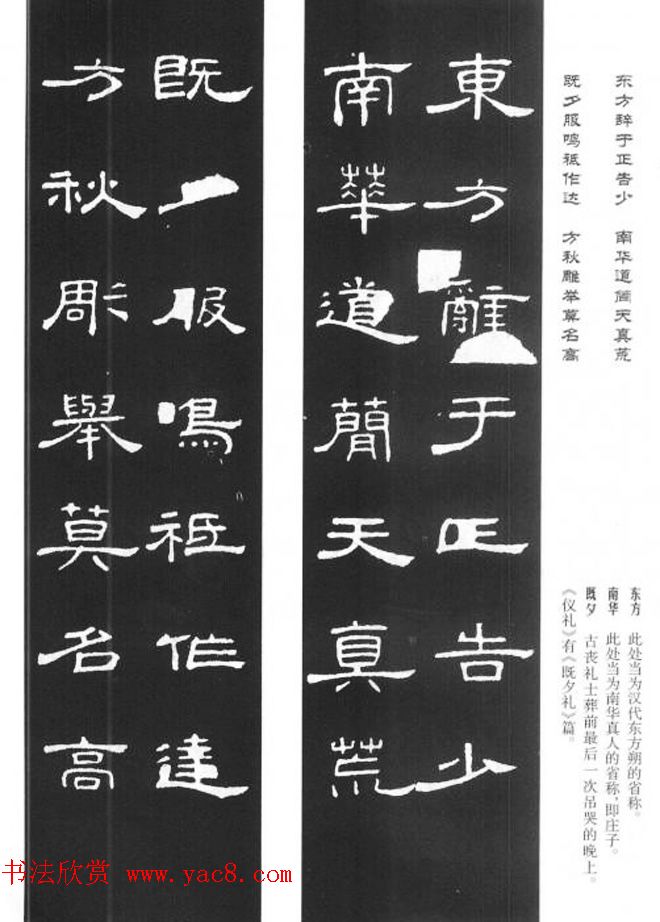 东方辞于正告少　南华道简天真荒
既夕服鸣祗作达　方秋雕举莫名高
东方　此处当为汉代东方朔的省称。
南华　此处当为南华真人的省称，即庄子。
既夕　古丧礼士葬前最后一次吊哭的晚上。
《仪礼》有《既夕礼》篇。
東方辭于正告少
南華道簡天真荒
既夕服鳴祗作達
方秋彫舉莫名高
书法欣赏 www.yac8.com